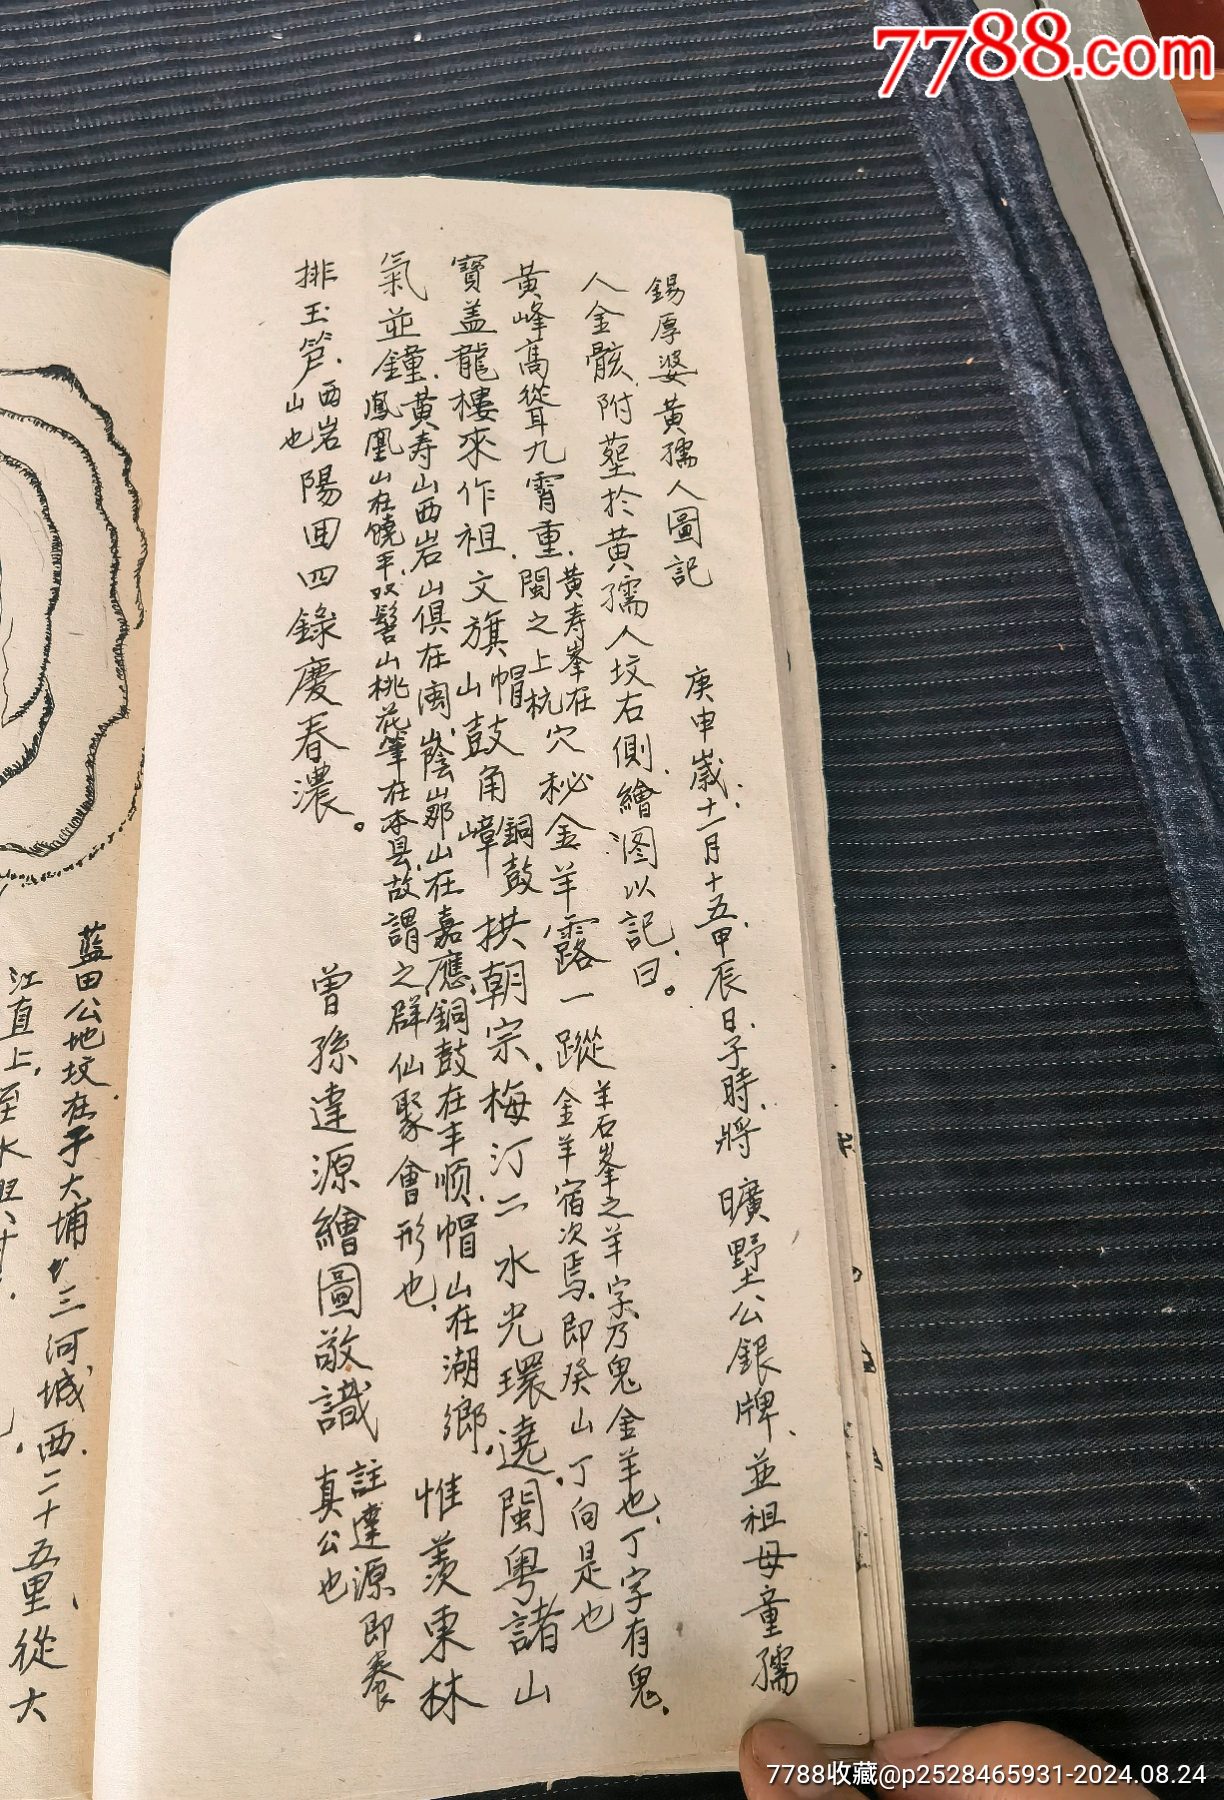 7788.com
錫厚婆黃孺人圖記
庚申歲,十一月十五,甲辰日,子時,將 曠野公銀牌、並祖母童孺
人金骸,附塟於黃孺人坟右側,繪图以記,曰。
黃峰高從耳九霄重,黃寿峯在閩之上杭穴秘金羊露一蹤羊石峯之羊字,乃鬼金羊也,丁字有鬼,金羊宿次焉,即癸山丁向是也
寶盖龍樓來作祖,文旗山鼓角嶂帽銅鼓拱朝宗,梅汀二水光環遶,閩粵諸山
氣並鐘,黃寿山西岩山俱在閩,陰那山在嘉應,銅鼓在丰順,帽山在湖鄉,鳳凰山在饒平,双髻山桃花筆在本县,故謂之群仙聚會形也,惟羡東林
排玉笋,西岩山也陽囬四錄慶春濃。
曾孫達源繪圖敬識 註達源即養真公也
蓝田公地坟在于大埔,三河城,西,二十五里,從大
江直上,至水
7788收藏@p2528465931-2024.08.24